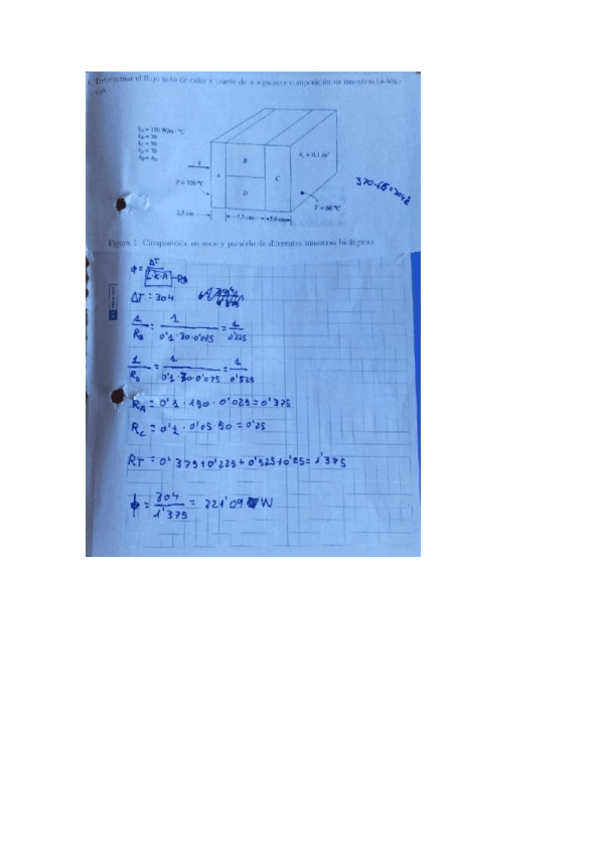 Determinar el flujo neto de calor a través de la siguiente composición de muestras biológi-
cas
k_A = 150 W/m · °C
k_B = 30
k_C = 50
k_D = 70
A_B = A_D
B
A_c = 0,1 m²
q
A
C
370-66=304
T = 370 °C
D
T = 66 °C
2,5 cm
7,5 cm
5,0 cm
Figura 1: Composición en serie y paralelo de diferentes muestras biológicas
ϕ = ΔT / L·K·A
ΔT = 304
1/R_B = 1/0'1·30·0'075 = 1/0'225
1/R_D = 1/0'1·70·0'075 = 1/0'525
R_A = 0'1 · 150 · 0'025 = 0'375
R_C = 0'1 · 0'05 · 50 = 0'25
RT = 0'375+0'225+0'525+0'25 = 1'375
ϕ = 304/1'375 = 221'09 W